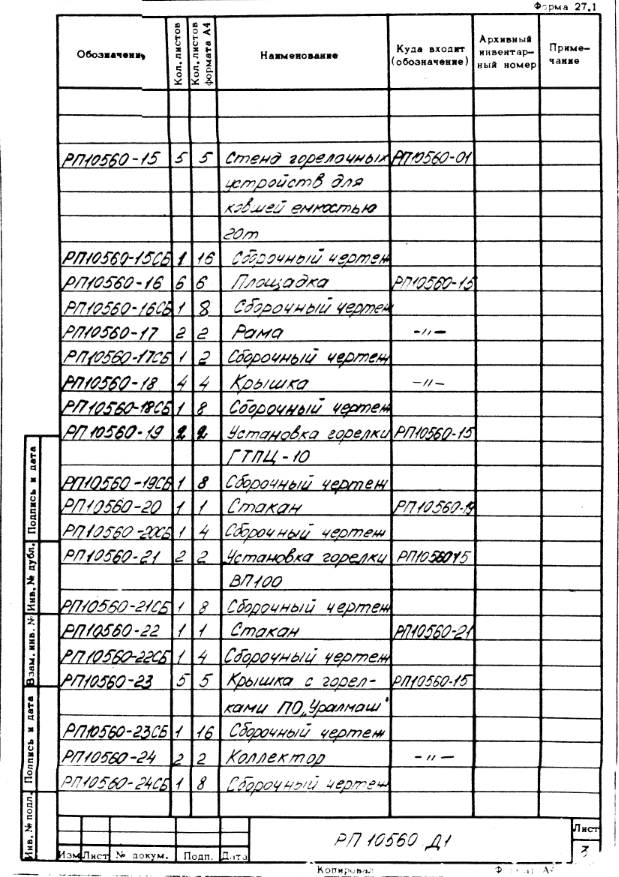 Форма 27.1
Обозначение Кол. листов Кол. листов формата А4 Наименование Куда входит (обозначение) Архивный инвентарный номер Примечание
РП10560-15 5 5 Стенд горелочных РП10560-01
устройств для
ковшей емкостью
20т
РП10560-15СБ 1 16 Сборочный чертеж
РП10560-16 6 6 Площадка РП10560-15
РП10560-16СБ 1 8 Сборочный чертеж
РП10560-17 2 2 Рама -"-
РП10560-17СБ 1 2 Сборочный чертеж
РП10560-18 4 4 Крышка -"-
РП10560-18СБ 1 8 Сборочный чертеж
РП10560-19 2 2 Установка горелки РП10560-15
ГТПЦ-10
РП10560-19СБ 1 8 Сборочный чертеж
РП10560-20 1 1 Стакан РП10560-19
РП10560-20СБ 1 4 Сборочный чертеж
РП10560-21 2 2 Установка горелки РП10560-15
ВП100
РП10560-21СБ 1 8 Сборочный чертеж
РП10560-22 1 1 Стакан РП10560-21
РП10560-22СБ 1 4 Сборочный чертеж
РП10560-23 5 5 Крышка с горел- РП10560-15
ками ПО„Уралмаш"
РП10560-23СБ 1 16 Сборочный чертеж
РП10560-24 2 2 Коллектор -"-
РП10560-24СБ 1 8 Сборочный чертеж
Подпись и дата
Инв. № дубл.
Взам. инв. №
Подпись и дата
Инв. № подл.
Изм Лист № докум. Подп. Дата
РП 10560 Д1
Лист
3
Копировал Формат А4